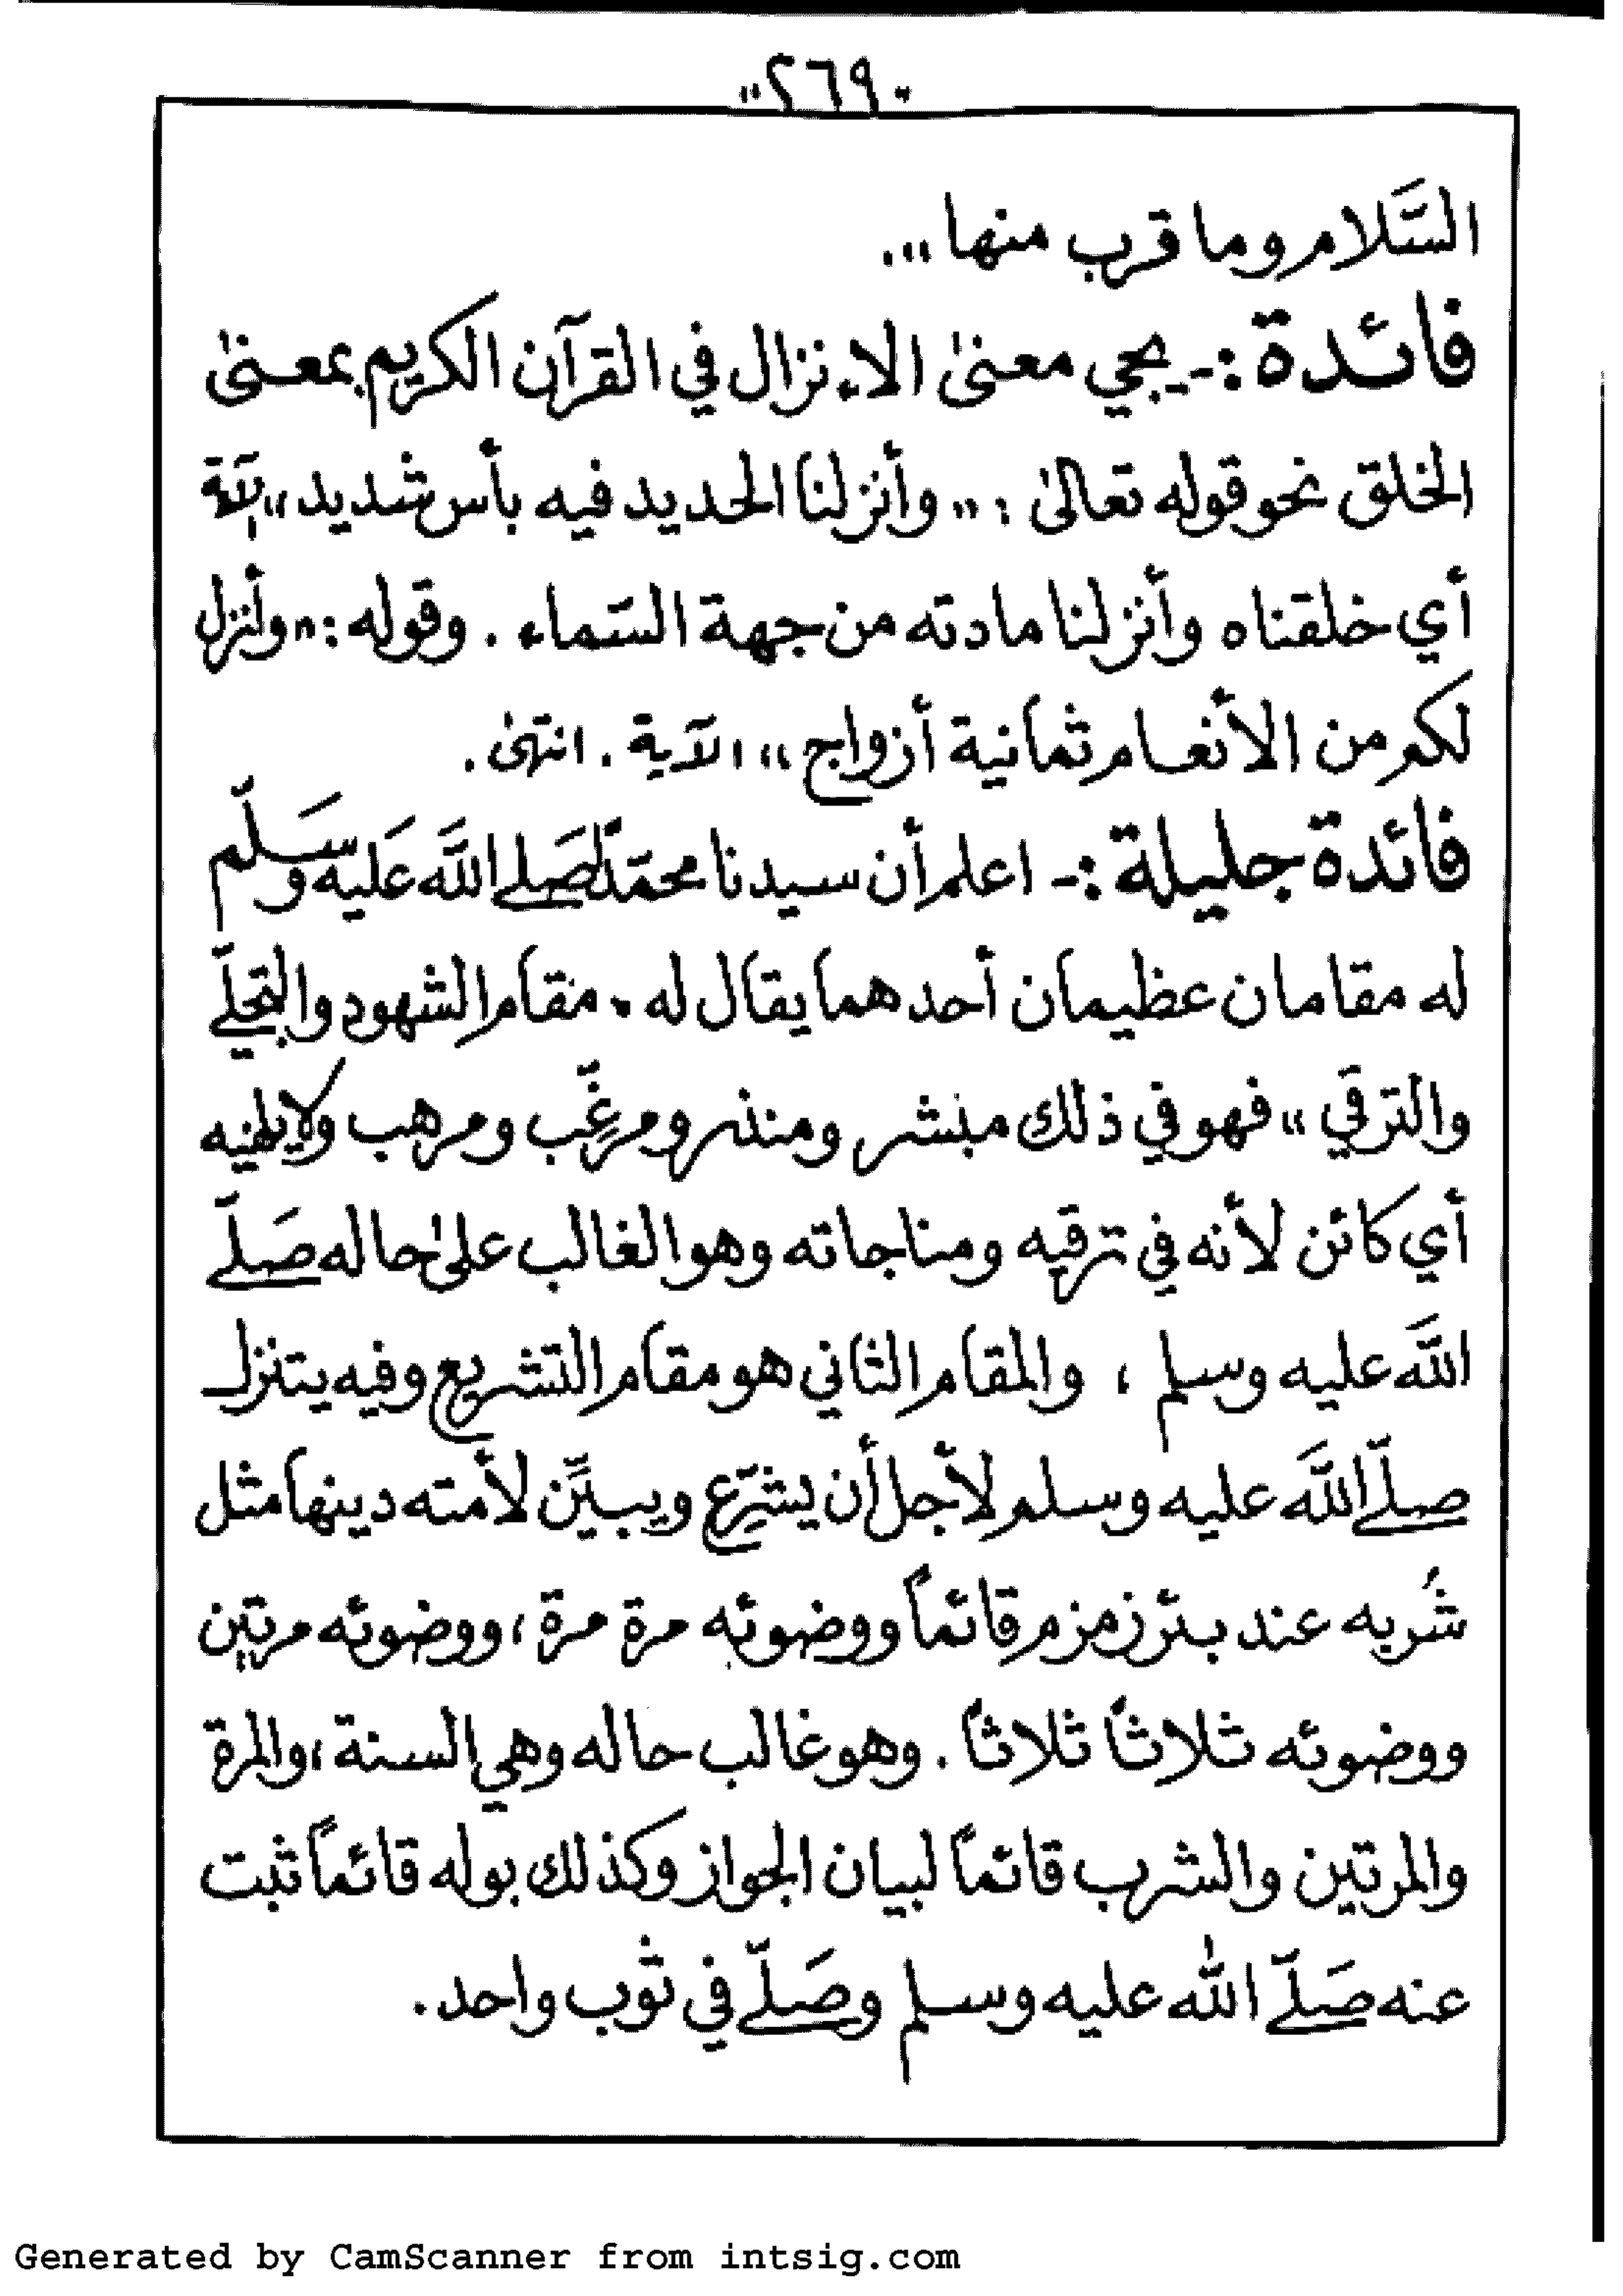 ٢٦٩
السَّلام وما قرب منها ...
فائدة :- يجي معنىٰ الإنزال في القرآن الكريم بمعنىٰ
الخلق نحو قوله تعالىٰ : " وأنزلنا الحديد فيه بأس شديد " الآية
أي خلقناه وأنزلنا مادته من جهة السّماء . وقوله : " وأنزل
لكم من الأنعام ثمانية أزواج " الآية . انتهىٰ .
فائدة جليلة :- اعلم أن سيدنا محمّداً صَلى اللَّه عَليه وسَلّم
له مقامان عظيمان أحدهما يقال له " مقام الشهود والتجلّي
والترقي " فهو في ذلك مبشر ومنذر ومرغِّب ومرهب ولا يلهيه
أي كائن لأنه في ترقيه ومناجاته وهو الغالب علىٰ حاله صَلّى
اللَّه عليه وسلم ، والمقام الثاني هو مقام التشريع وفيه يتنزل
صلّى اللَّه عليه وسلم لأجل أن يشرِّع ويبيِّن لأمته دينها مثل
شُربه عند بئر زمزم قائماً ووضوئه مرة مرة ، ووضوئه مرتين
ووضوئه ثلاثاً ثلاثاً . وهو غالب حاله وهي السنة ، والمرة
والمرتين والشرب قائماً لبيان الجواز وكذلك بوله قائماً ثبت
عنه صَلّى الله عليه وسلم وصَلّى في ثوب واحد .
Generated by CamScanner from intsig.com